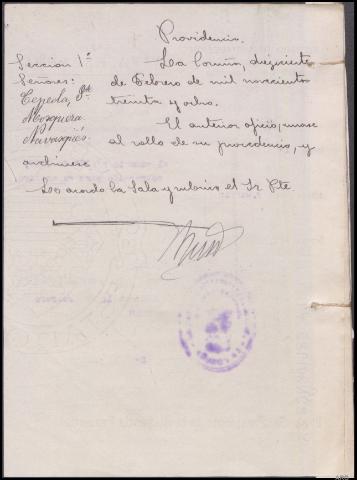 Providencia.
Seccion 1ª
Señores:
Cepeda, Pte
Mosquera
Navasqués
La Coruña, diezisiete
de Febrero de mil novecientos
treinta y ocho.
El anterior oficio, unase
al rollo de su procedencia, y
archivese
Lo acordó la Sala y rubrica el Sr Pte